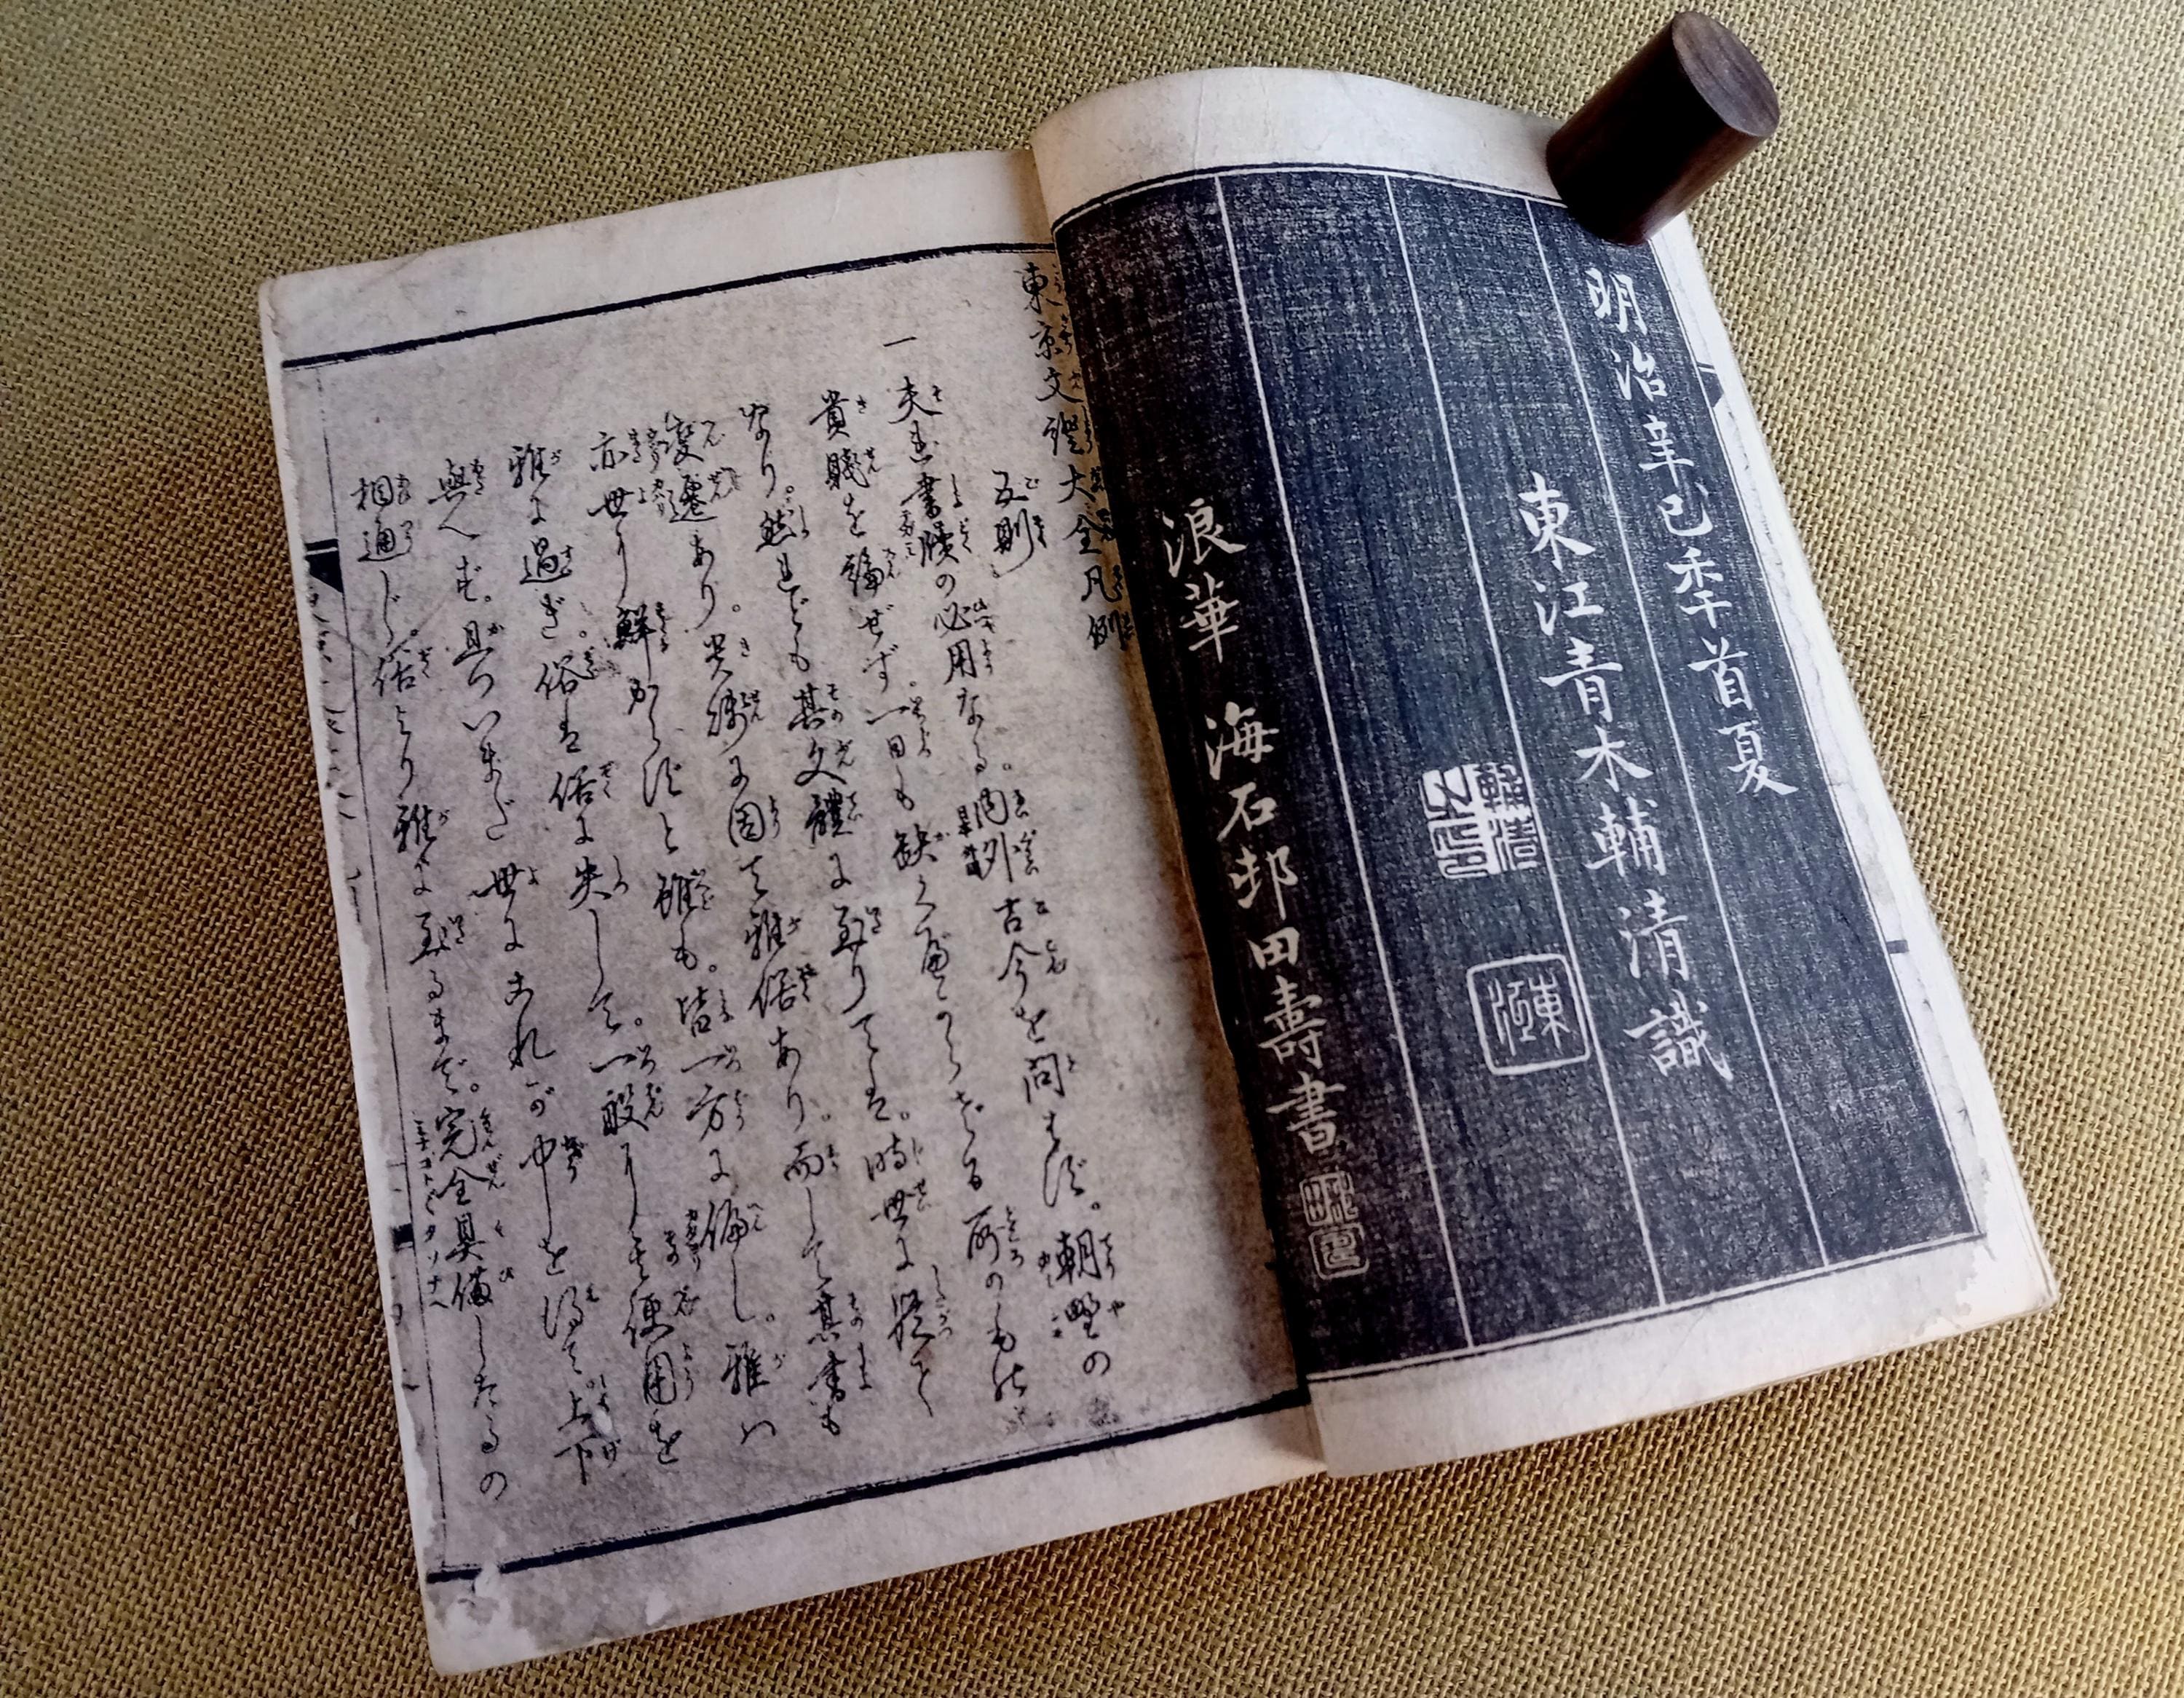 明治辛巳季首夏
東江青木輔清識
輔清之印
東江
浪華 海石邨田壽書
東京文證大全凡例
五則
一夫れ書牘の必用なる。内外古今を問はず。朝野の
貴賤を論ぜず。一日も缺くべからざる所のもの
なり。然れども其文體に至りては。時世に従て
變遷あり。貴賤に因て雅俗あり。而して其書も
亦世に鮮からずと雖も。皆一方に偏し。雅ハ
雅に過ぎ。俗は俗に失して。一般に便用を
與へず。且ついまだ世にこれが中しを得て。上下
相通じ。俗より雅に至るまで。完全具備したるの